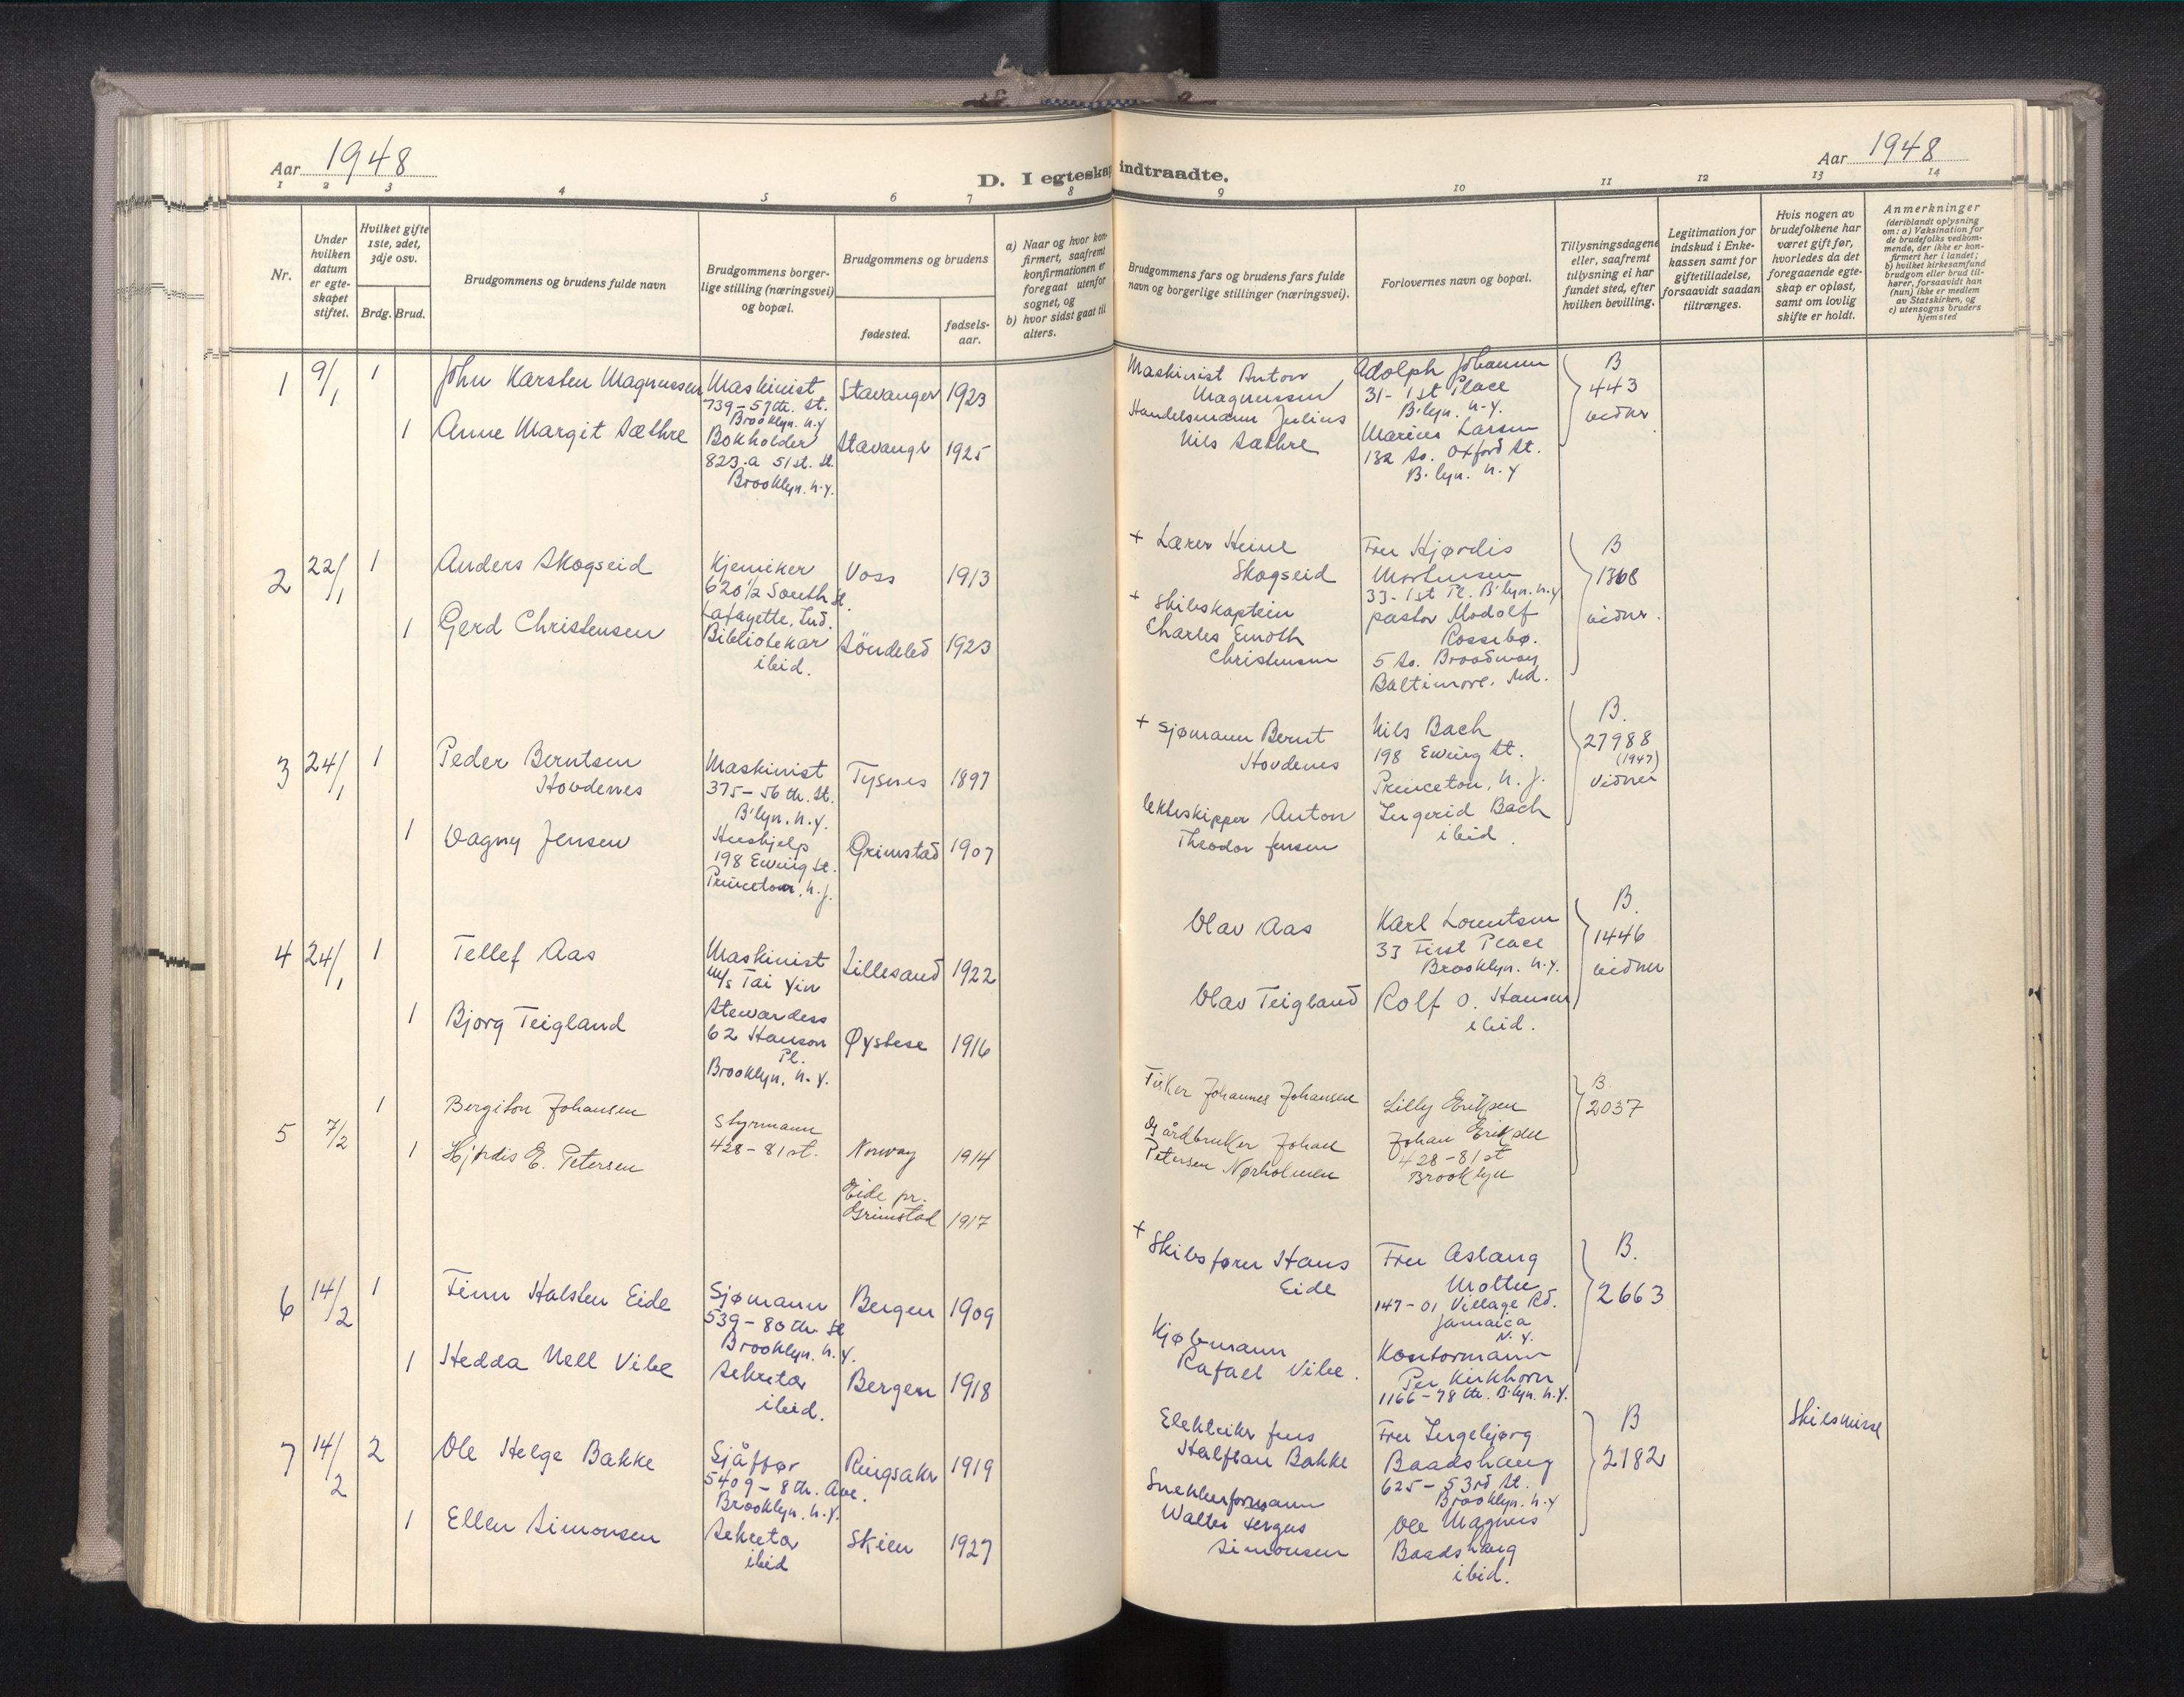 Aar 1948
D. I egteskap indtraadte.
Aar 1948
1 2 3 4 5 6 7 8 9 10 11 12 13 14
Nr.
Under hvilken datum er egteskapet stiftet.
Hvilket gifte 1ste, 2det, 3dje osv.
Brdg. Brud.
Brudgommens og brudens fulde navn
Brudgommens borgerlige stilling (næringsvei) og bopæl.
Brudgommens og brudens
fødested.
fødselsaar.
a) Naar og hvor konfirmert, saafremt konfirmationen er foregaat utenfor sognet, og
b) hvor sidst gaat til alters.
Brudgommens fars og brudens fars fulde navn og borgerlige stillinger (næringsvei).
Forlovernes navn og bopæl.
Tillysningsdagene eller, saafremt tillysning ei har fundet sted, efter hvilken bevilling.
Legitimation for indskud i Enkekassen samt for giftetilladelse, forsaavidt saadan tiltrænges.
Hvis nogen av brudefolkene har været gift før, hvorledes da det foregaaende egteskap er opløst, samt om lovlig skifte er holdt.
Anmerkninger
(deriblandt oplysning om: a) Vaksination for de brudefolks vedkommende, der ikke er konfirmert her i landet;
b) hvilket kirkesamfund brudgom eller brud tilhører, forsaavidt han (hun) ikke er medlem av Statskirken, og
c) utensogns bruders hjemsted
1 9/1 1 John Karsten Magnussen
Maskinist
739 - 57th. St.
Brooklyn. N.Y
Stavanger 1923
Maskinist Anton
Magnussen
Adolph Johannsen
31 - 1st Place
B'lyn. N.Y.
B
443
vidner
1 Anne Margit Sæthre
Bokholder
823.a 51st. St.
Brooklyn. N.Y.
Stavanger 1925
Handelsmann Julius
Nils Sæthre
Marius Larsen
132 So. Oxford St.
B.lyn. N.Y
2 22/1 1 Anders Skogseid
Kjemiker
620 1/2 South St.
Lafayette, Ind.
Voss 1913
+ Lærer Heine
Skogseid
Fru Hjørdis
Mortensen
33 - 1st Pl. B'lyn. N.Y
B
1368
vidner.
1 Gerd Christensen
Bibliotekar
ibid.
Søndeled 1923
+ Skibskaptein
Charles Emoth
Christensen
pastor Modolf
Rossebø.
5 So. Broadway
Baltimore. Md.
3 24/1 1 Peder Berntsen
Hovdenes
Maskinist
375 - 56th. St.
B'lyn. N.Y.
Tysnes 1897
+ Sjømann Bernt
Hovdenes
Nils Bach
198 Ewing St.
Princeton, N.J.
B.
27988
(1947)
vidner
1 Dagny Jensen
Hushjelp
198 Ewing St.
Princeton, N.J.
Grimstad 1907
lekteskipper Anton
Theodor Jensen
Ingerid Bach
ibid.
4 24/1 1 Tellef Aas
Maskinist
M/s Tai Yin
Lillesand 1922
Olav Aas
Karl Lorentsen
33 First Place
Brooklyn. N.Y.
B.
1446
vidner
1 Bjorg Teigland
Stewardess
62 Hanson
Pl.
Brooklyn. N.Y.
Øystese 1916
Olav Teigland
Rolf O. Hansen
ibid.
5 7/2 1 Bergiton Johansen
Styrmann
428 - 81st.
Norway 1914
Fisker Johannes Johansen
Lilly Eriksen
B.
2037
1 Hjørdis E. Petersen
Eide pr.
Grimstad 1917
Gårdbruker Johan
Petersen Nørholmen
Johan Eriksen
428 - 81st
Brooklyn
6 14/2 1 Finn Halsten Eide
Sjømann
539 - 80th. St
Brooklyn. N.Y.
Bergen 1909
+ Skibsfører Hans
Eide
Fru Aslaug
147 - 01 Village Rd.
Jamaica
N.Y.
B.
2663
1 Hedda Nell Vibe
Sekretær
ibid.
Bergen 1918
Kjøbmann
Rafael Vibe.
Kontormann
Per Kirkhorn
1166 - 78th. B'lyn. N.Y.
7 14/2 2 Ole Helge Bakke
Sjåfør
5409 - 8th. Ave.
Brooklyn. N.Y.
Ringsaker 1919
Elektriker Jens
Halfdan Bakke
Fru Ingebjørg
Baadshaug
625 - 53rd St.
Brooklyn. N.Y
B
2182
Skilsmisse
1 Ellen Simonsen
Sekretær
ibid
Skien 1927
Snekkerformann
Walter
Simonsen
Ole Magnus
Baadshaug
ibid.